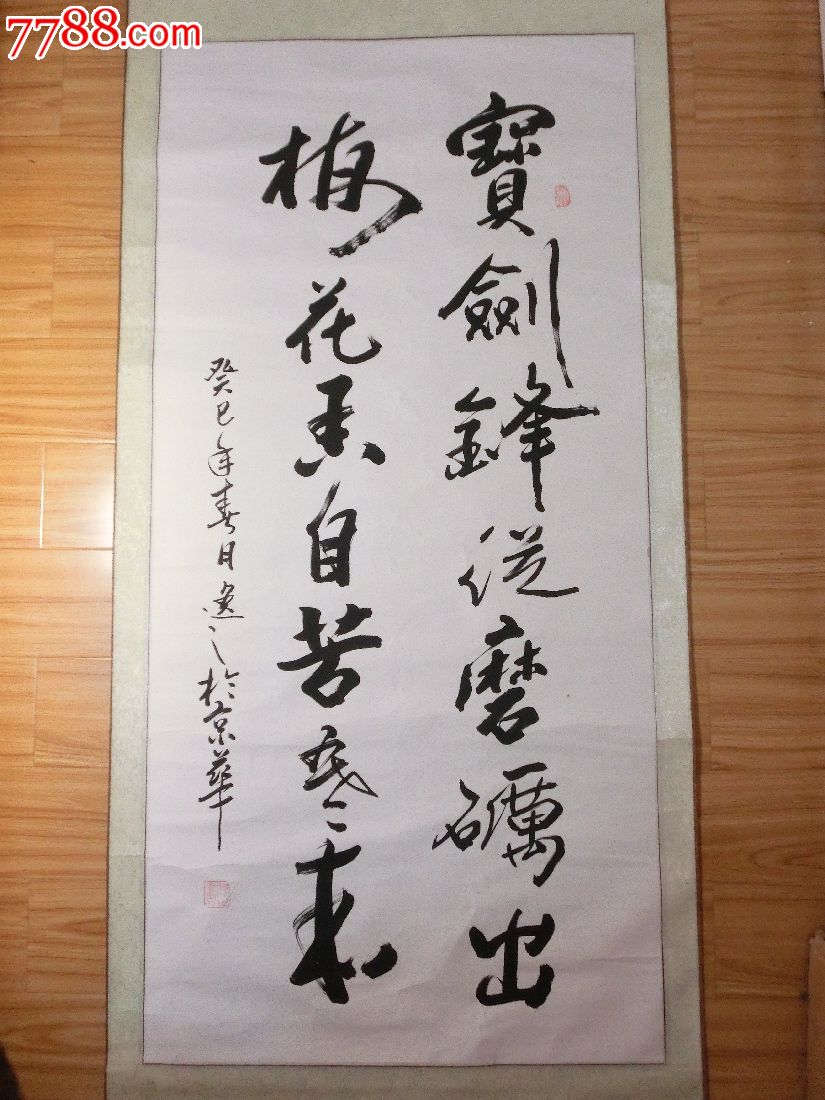 7788.com
寶劍鋒從磨礪出
梅花香自苦寒來
癸巳年春日逸之於京華